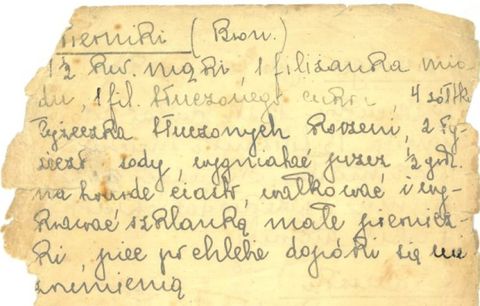 Pierniki (Bron.)
1½ kw. mąki, 1 filiżanka mio-
du, 1 fil. tłuczonego cukru, 4 żółtk
łyżeczka tłuczonych korzeni, 2 ły-
żeczk sody, wygniatać przez ½ godz.
na twarde ciasto, wałkować i wy-
krawać szklanką małe pierniczki
ki, piec po chlebie dopóki się nie
zrumienią